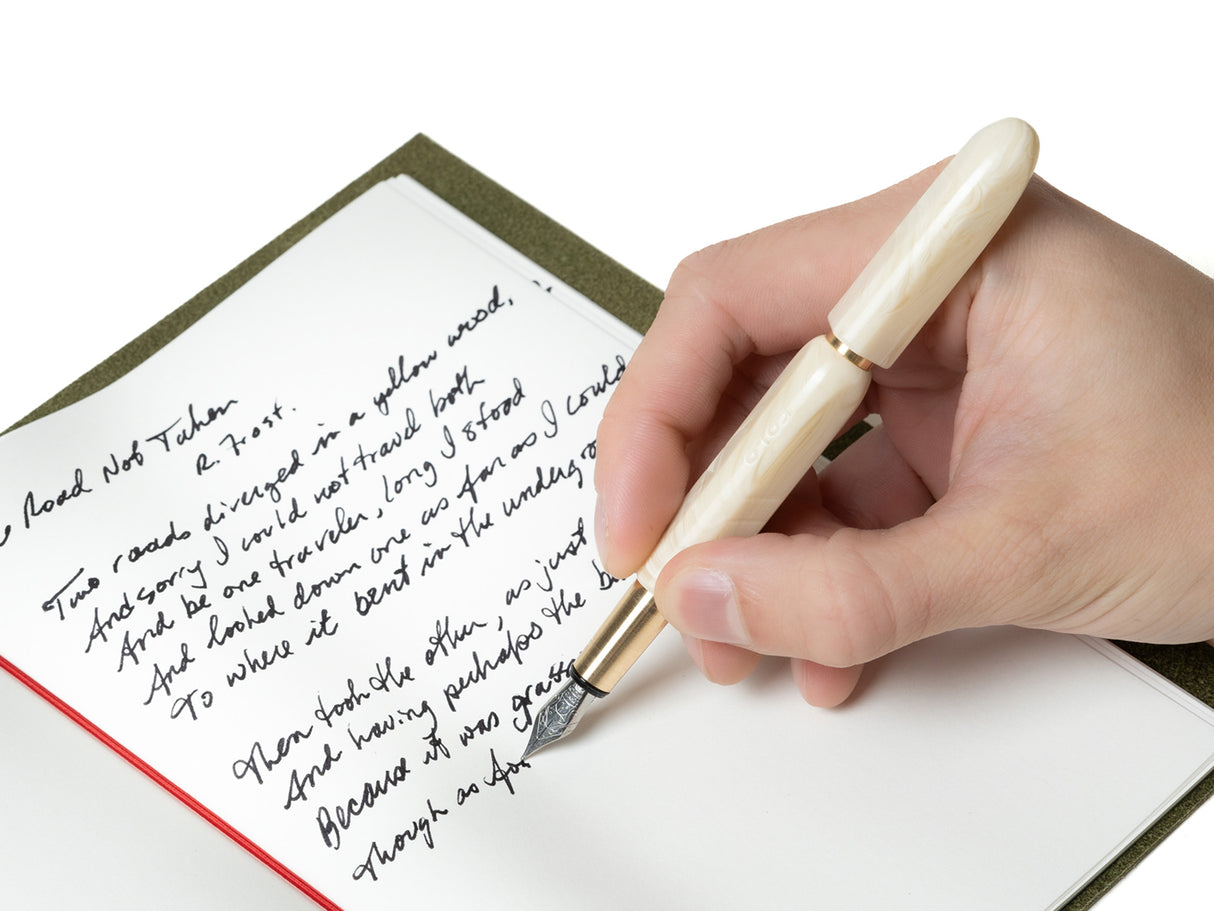 Road Not Taken
R. Frost.
Two roads diverged in a yellow wood,
And sorry I could not travel both
And be one traveler, long I stood
And looked down one as far as I could
To where it bent in the undergro
Then took the other, as just
And having perhaps the be
Because it was grass
Though as for